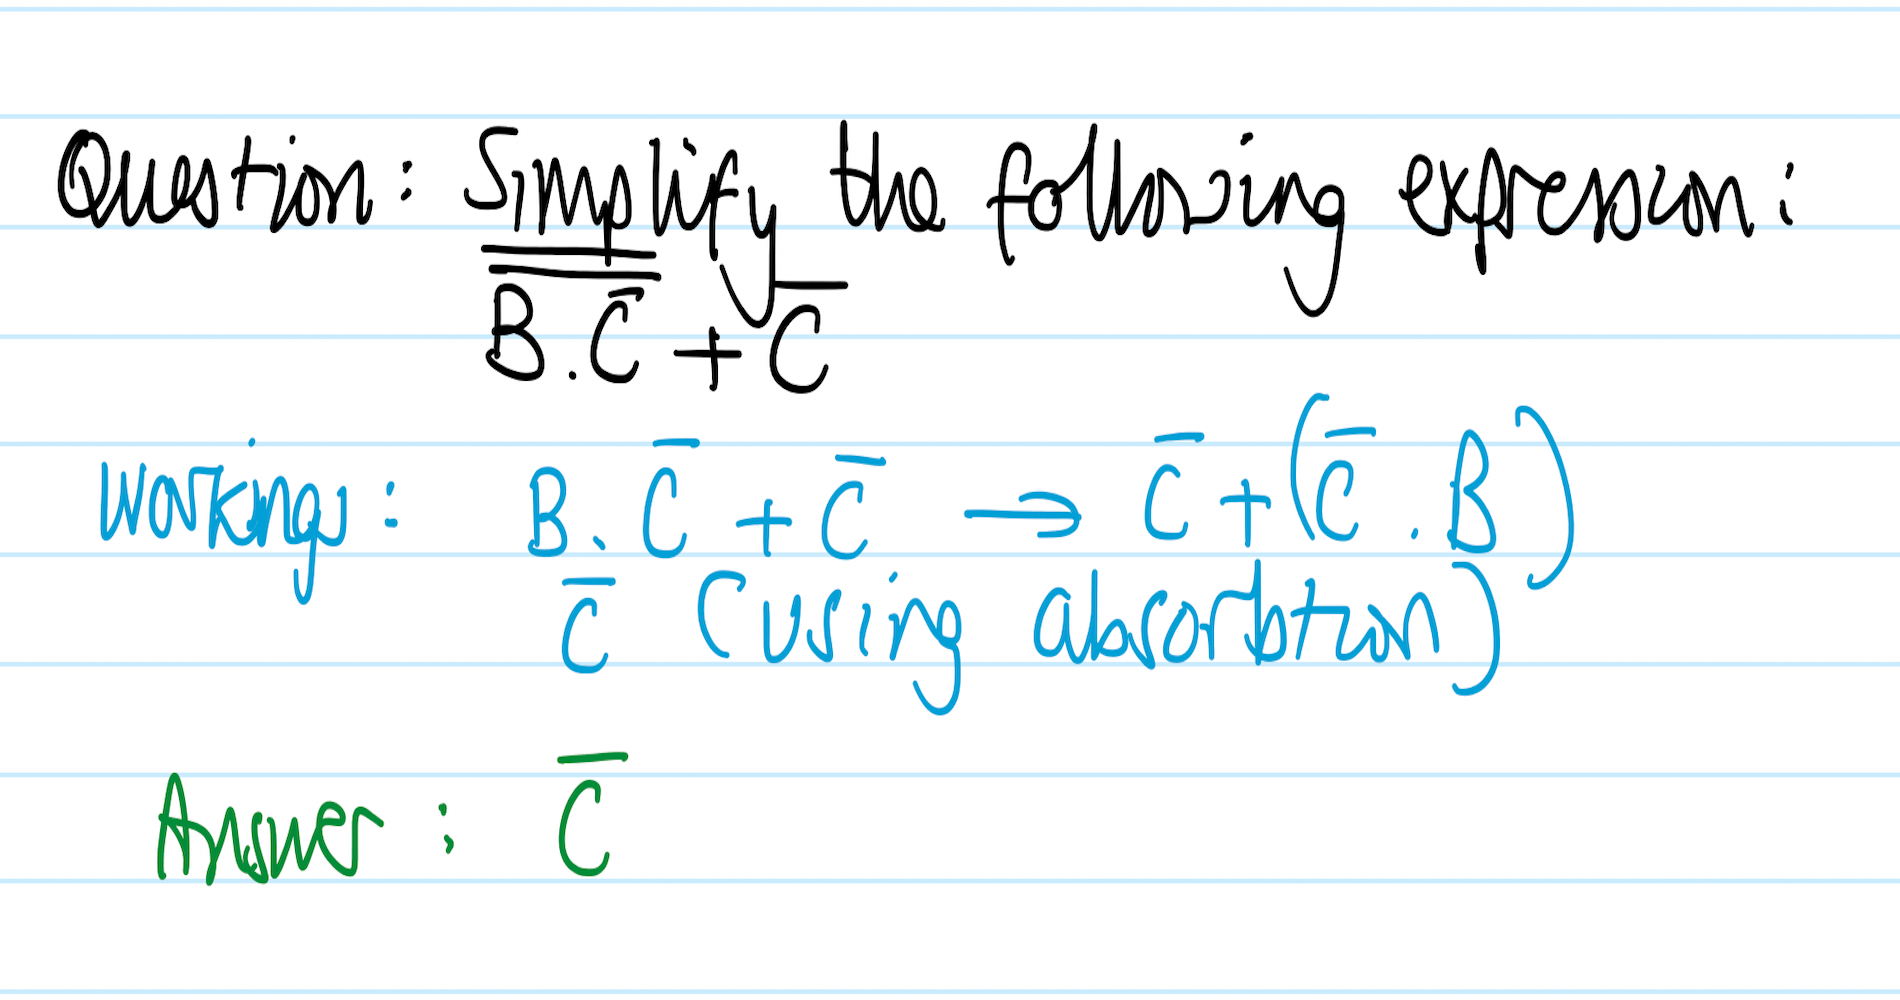 Question: Simplify the following expression:
$\overline{\overline{B.\overline{C}}} + \overline{C}$
Workings: $B.\overline{C} + \overline{C} \rightarrow \overline{C} + (\overline{C}.B)$
$\overline{C}$ (using absorbtion)
Answer: $\overline{C}$